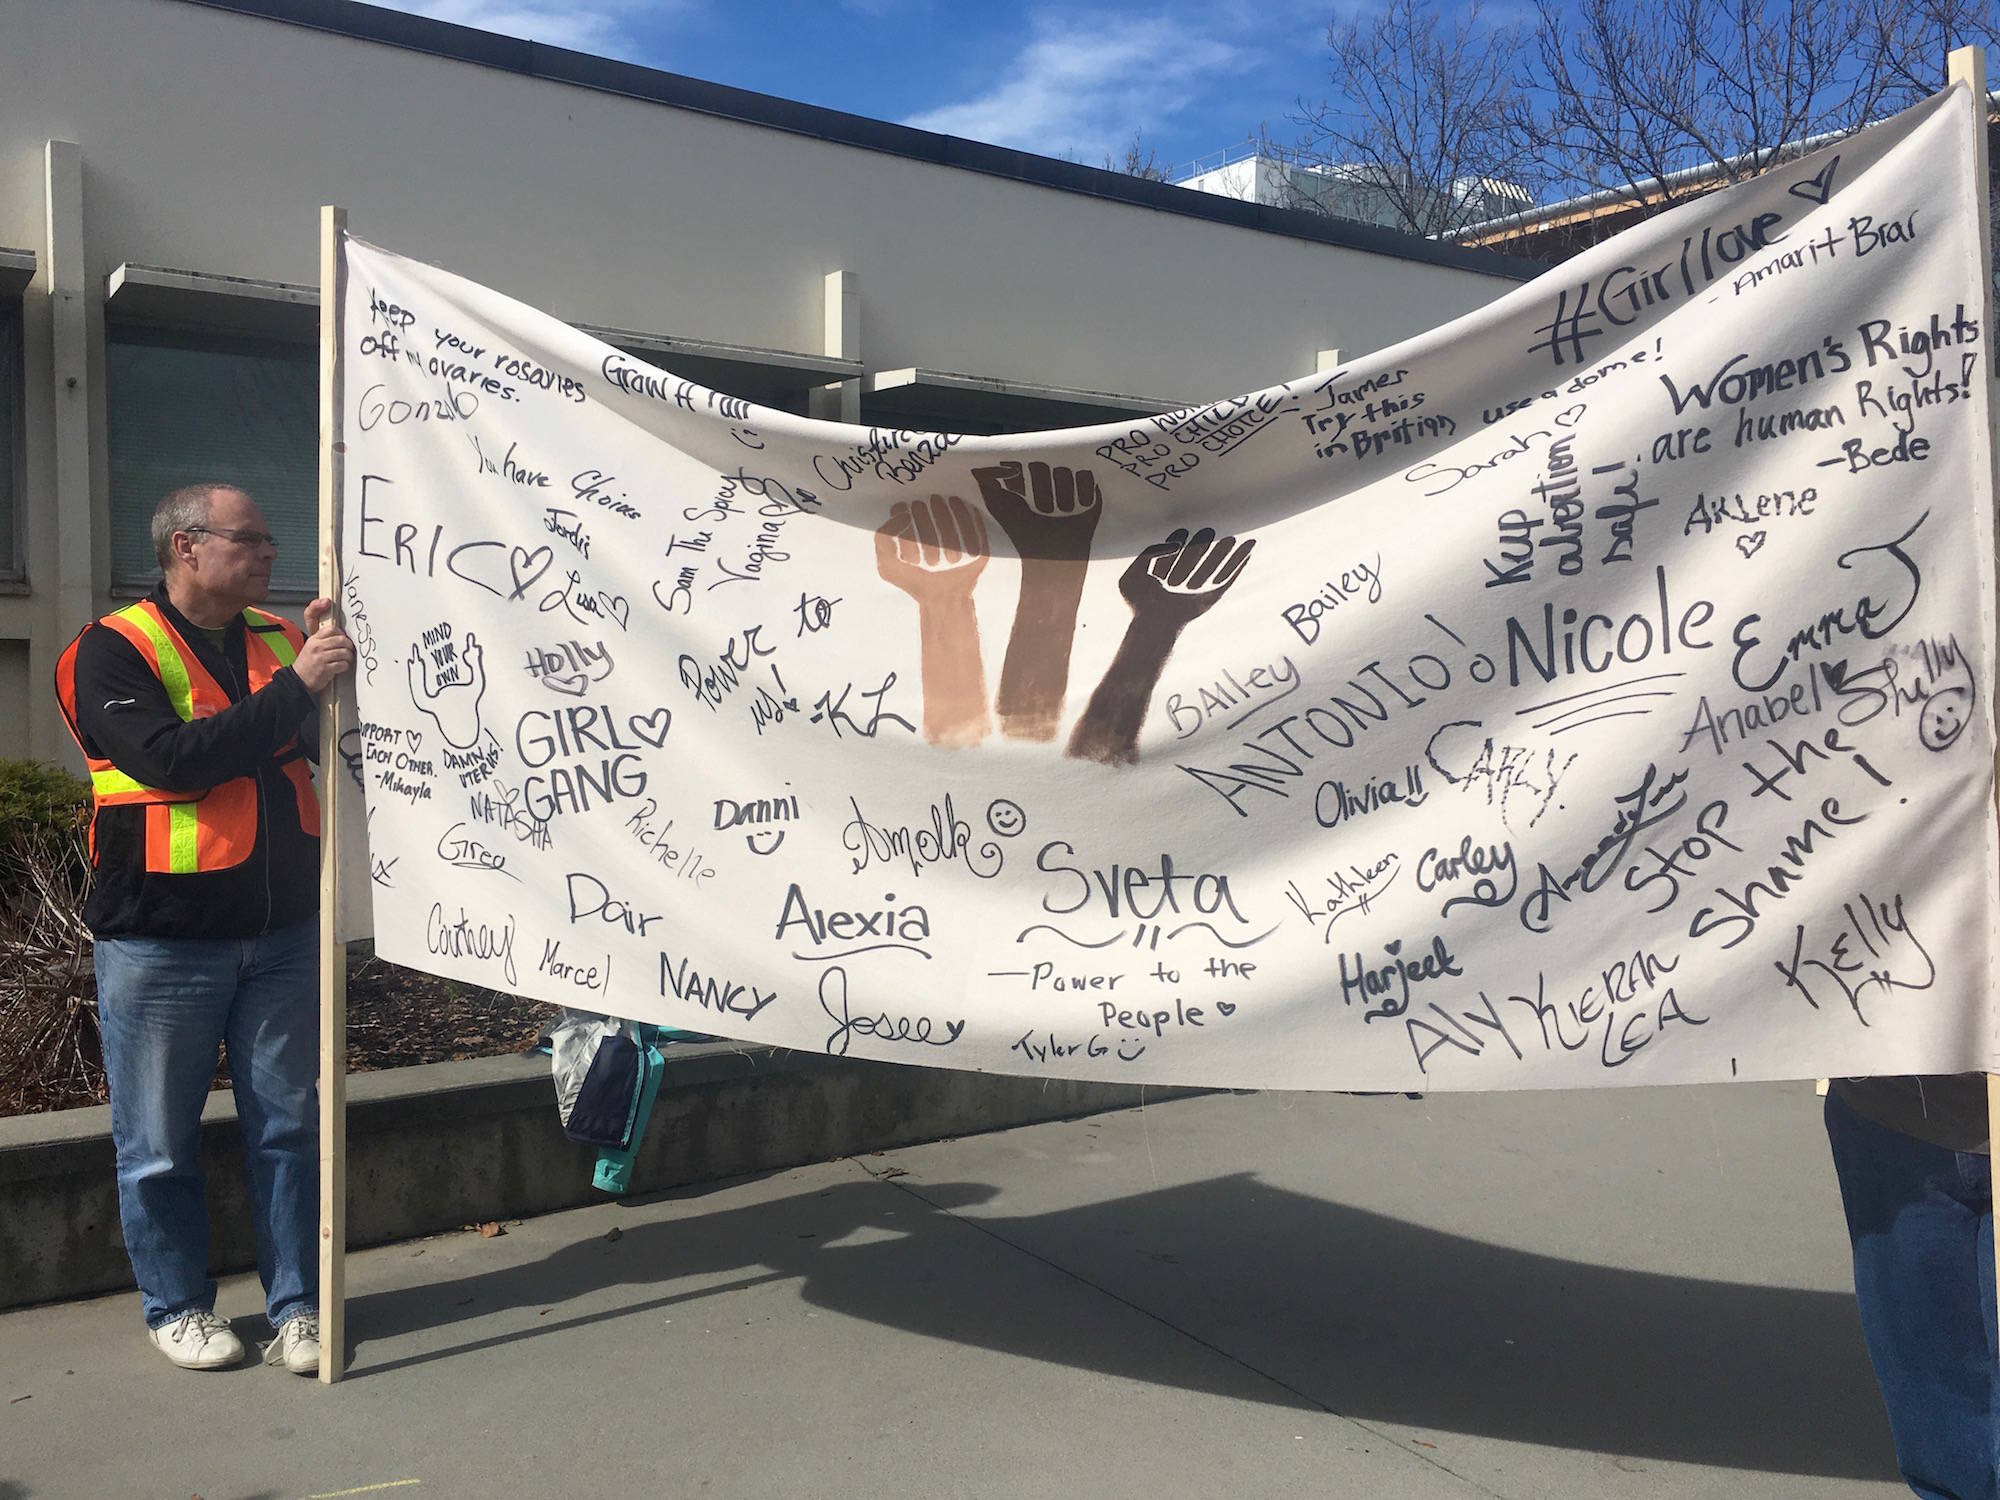 keep your rosaries
off my ovaries.
Gonzalo
You have Choices
Jordis
ERIC
Lisa
Vanessa
MIND
YOUR
OWN
DAMN
UTERUS!
SUPPORT
EACH OTHER.
-Mikayla
Holly
GIRL
GANG
NATASHA
Greg
Richelle
Courtney
Marcel
Dair
NANCY
Grow A Pair
Sam The Spicy
Vagina
Power to
us!
-KL
Danni
Amolk
Alexia
Josee
Sveta
-Power to the
People
Tyler G
PRO
PRO CHILD
PRO CHOICE!
James
Try this
in British
use a dome!
Sarah
#Girllove
- Amarit Brar
Women's Rights
are human Rights!
-Bede
Keep
abortion
safe!
Arlene
Bailey
BAILEY
ANTONIO!
Nicole
Emma
Anabel
Shelly
Olivia
CARLY.
Kathleen
Carley
Stop the
Shame!
Harjeet
Aly
KIERAN
LEA
Kelly